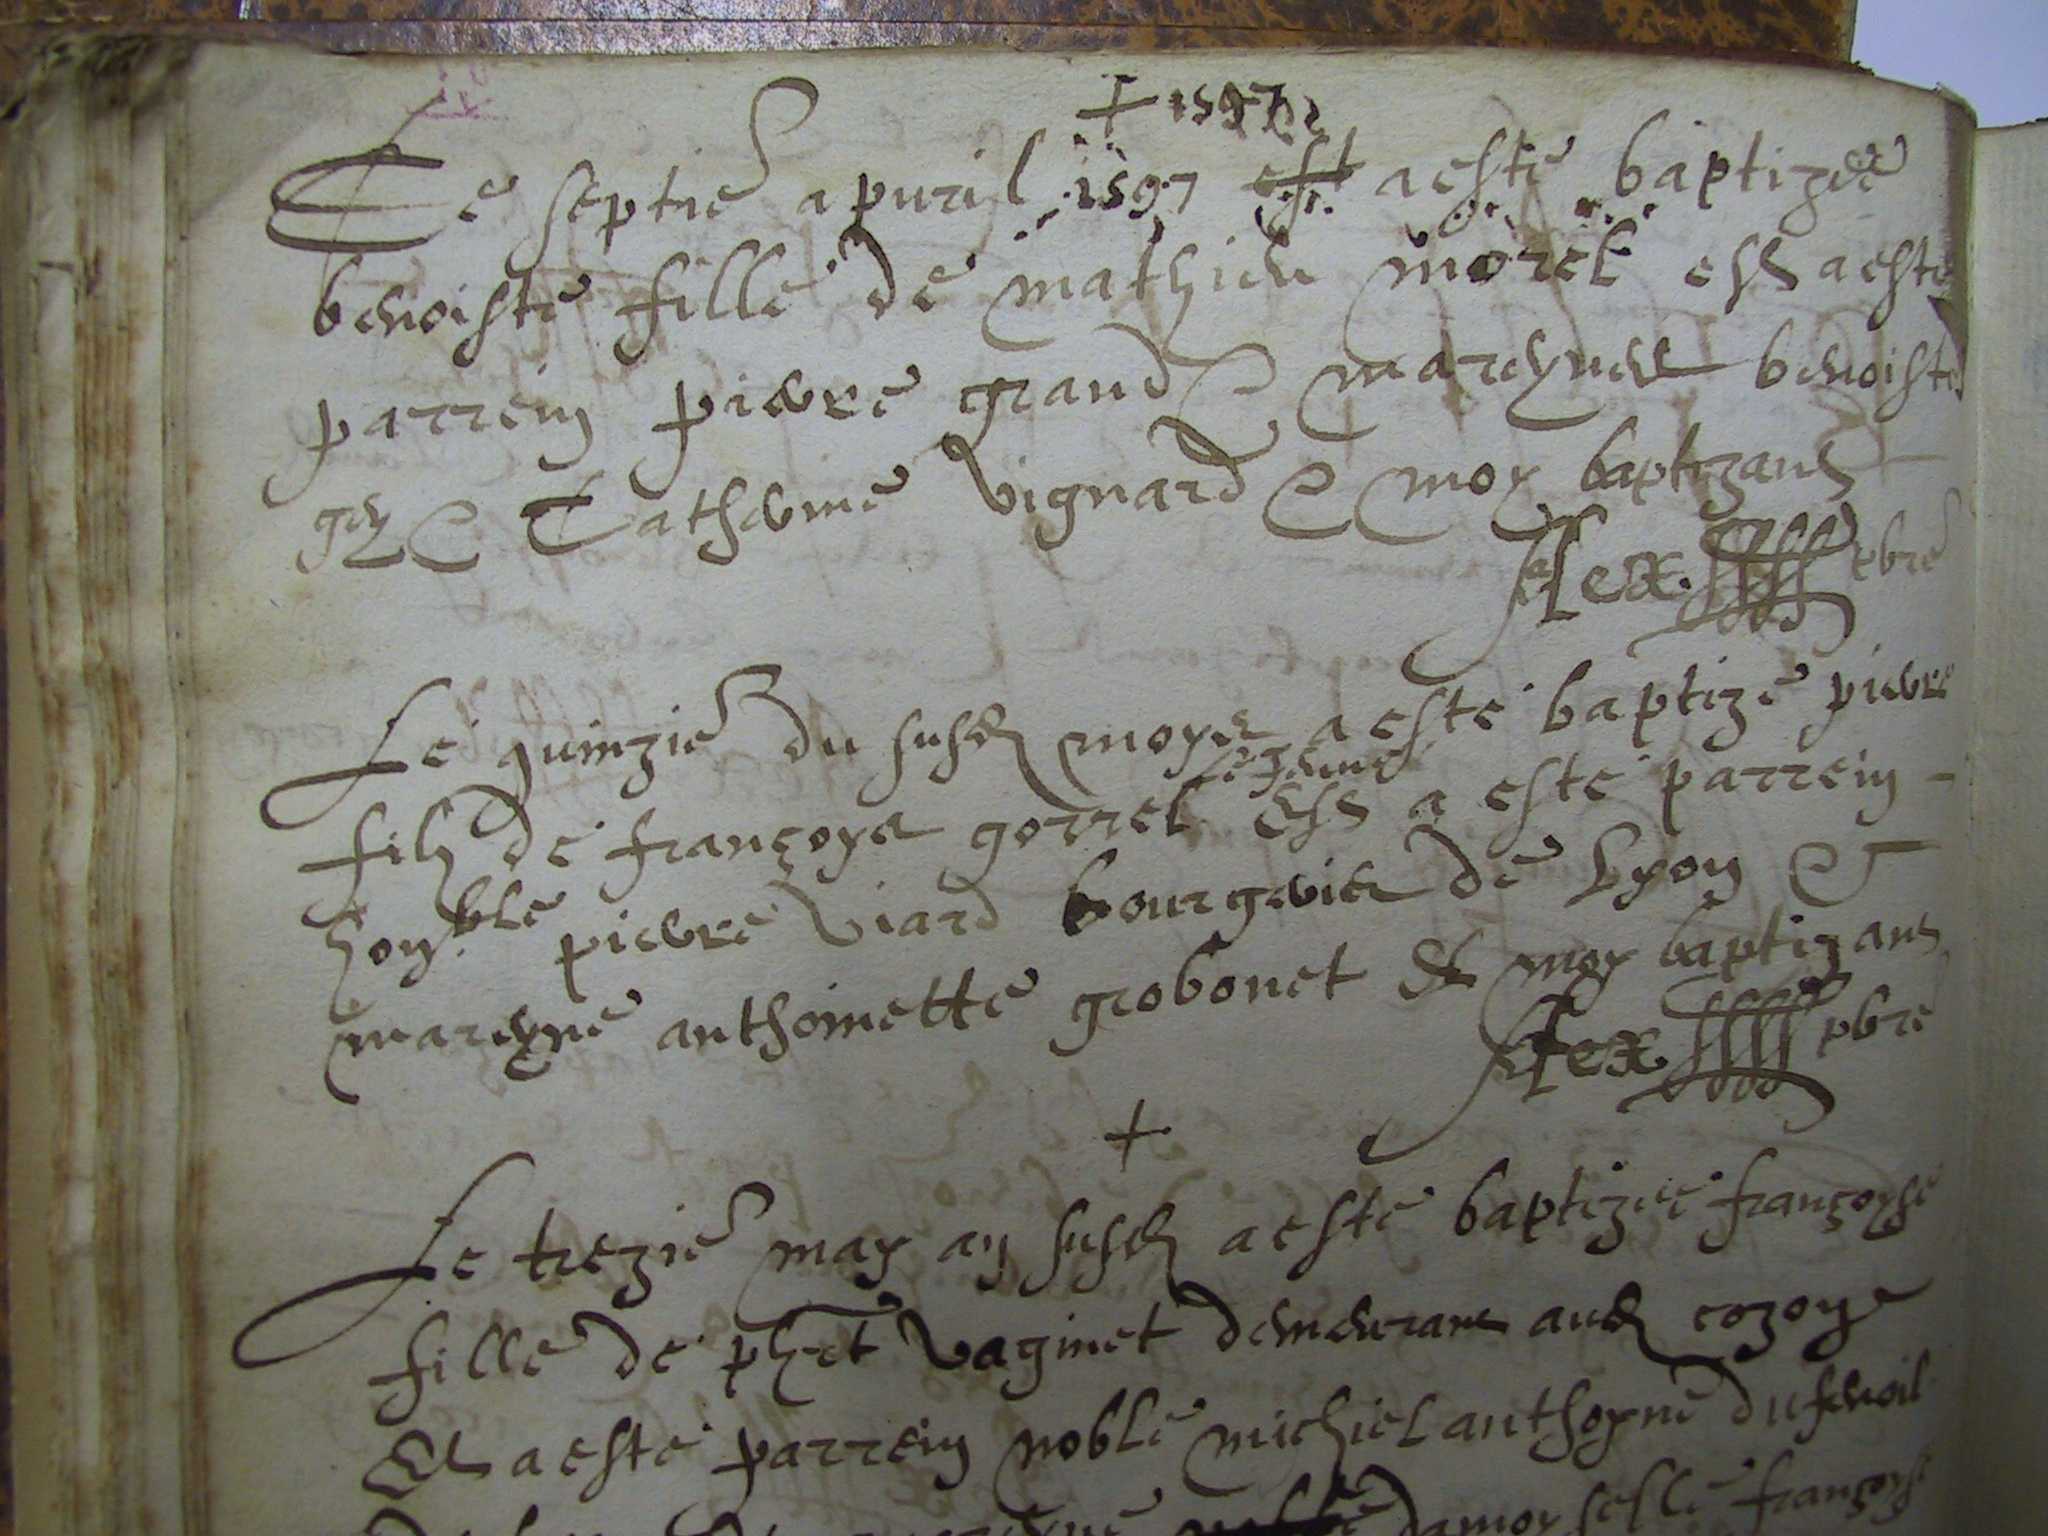 + 1597
Le septie apvril 1597 est aesté baptizée
benoiste fille de mathieu morel ess aesté
parrein pierre grand & mareyne benoiste
gey & Catherine vignard & moy baptizant
Alex pbre
Le quinzie du susd moys a esté baptizé pierre
le jeune
filz de françoys gorrel ess a esté parrein
hon.ble pierre viard bourgeois de Lyon &
mareyne anthoinette grobonet & moy baptizant
Alex pbre
+
Le trezie may an susd aesté baptizée françoyse
fille de vaginet demeurant aud cozon
Et aesté parrein noble michiel anthoyne dufenoil
damoyselle françoyse